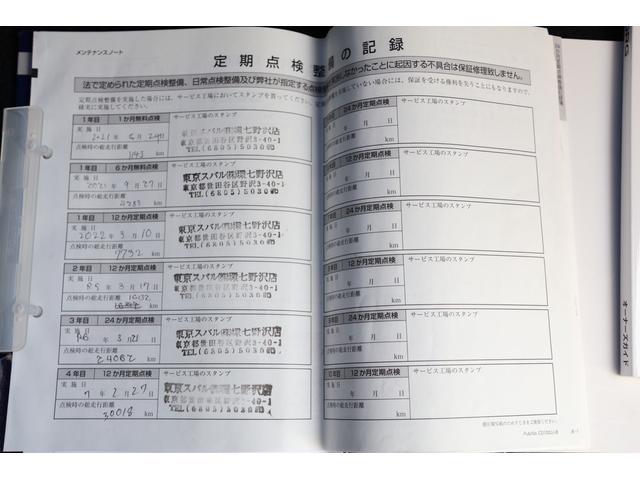 メンテナンスノート
定期点検整備の記録
法で定められた定期点検整備、日常点検整備及び弊社が指定する点検
しなかったことに起因する不具合は保証修理致しません。
定期点検整備を実施した場合には、サービス工場においてスタンプを貰ってください。
確実に実施してください。
していない場合には、保証を受ける権利を失うこともなりますので、
1年目 1か月無料点検 サービス工場のスタンプ
実施日
2021年 月24日
点検時の総走行距離
1143 km
東京スバル㈱環七野沢店
東京都世田谷区野沢3-40-1
TEL(6805)5030
1年目 6か月無料点検 サービス工場のスタンプ
実施日
2021年9月27日
点検時の総走行距離
km
東京スバル㈱環七野沢店
東京都世田谷区野沢3-40-1
TEL(6805)5030
1年目 12か月定期点検 サービス工場のスタンプ
実施日
2022年3月10日
点検時の総走行距離
7732 km
東京スバル㈱環七野沢店
東京都世田谷区野沢3-40-1
TEL(6805)5030
2年目 12か月定期点検 サービス工場のスタンプ
実施日
R5年3月17日
点検時の総走行距離
km
東京スバル㈱環七野沢店
東京都世田谷区野沢3-40-1
TEL(6805)5030
3年目 24か月定期点検 サービス工場のスタンプ
実施日
R6年3月21日
点検時の総走行距離
24082 km
東京スバル㈱環七野沢店
東京都世田谷区野沢3-40-1
TEL(6805)5030
4年目 12か月定期点検 サービス工場のスタンプ
実施日
7年2月27日
点検時の総走行距離
30018 km
東京スバル㈱環七野沢店
東京都世田谷区野沢3-40-1
TEL(6805)5030
24か月定期点検 サービス工場のスタンプ
年 月 日
km
12か月定期点検 サービス工場のスタンプ
年 月 日
km
24か月定期点検 サービス工場のスタンプ
年 月 日
km
12か月定期点検 サービス工場のスタンプ
年 月 日
km
24か月定期点検 サービス工場のスタンプ
年 月 日
km
12か月定期点検 サービス工場のスタンプ
年 月 日
km
オーナーズガイド